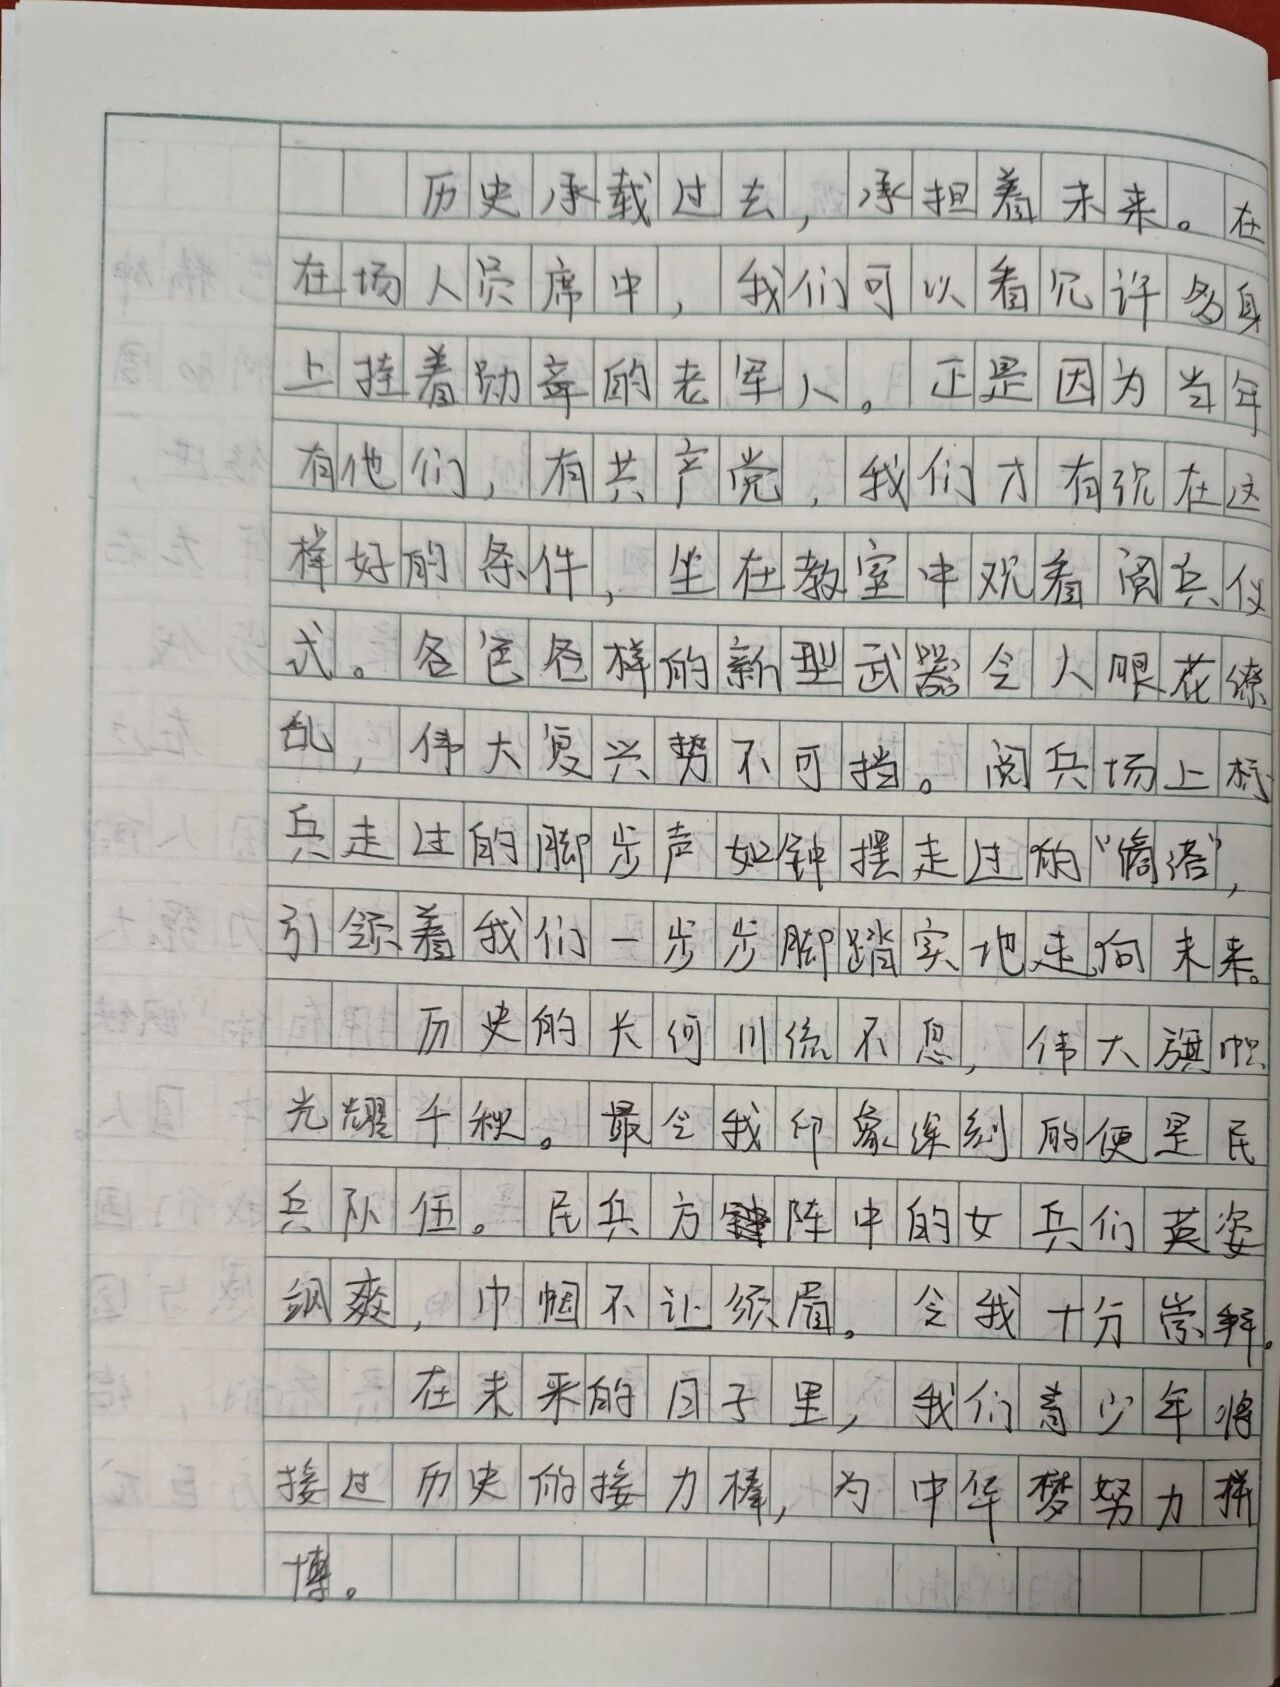 历史承载过去，承担着未来。在
在场人员席中，我们可以看见许多身
上挂着勋章的老军人。正是因为当年
有他们，有共产党，我们才有现在这
样好的条件，坐在教室中观看阅兵仪
式。各色各样的新型武器令人眼花缭
乱，伟大复兴势不可挡。阅兵场上标
兵走过的脚步声如钟摆走过的“嘀嗒”，
引领着我们一步步脚踏实地走向未来。
历史的长河川流不息，伟大旗帜
光耀千秋。最令我印象深刻的便是民
兵队伍。民兵方阵中的女兵们英姿
飒爽，巾帼不让须眉。令我十分崇拜。
在未来的日子里，我们青少年将
接过历史的接力棒，为中华梦努力拼
博。